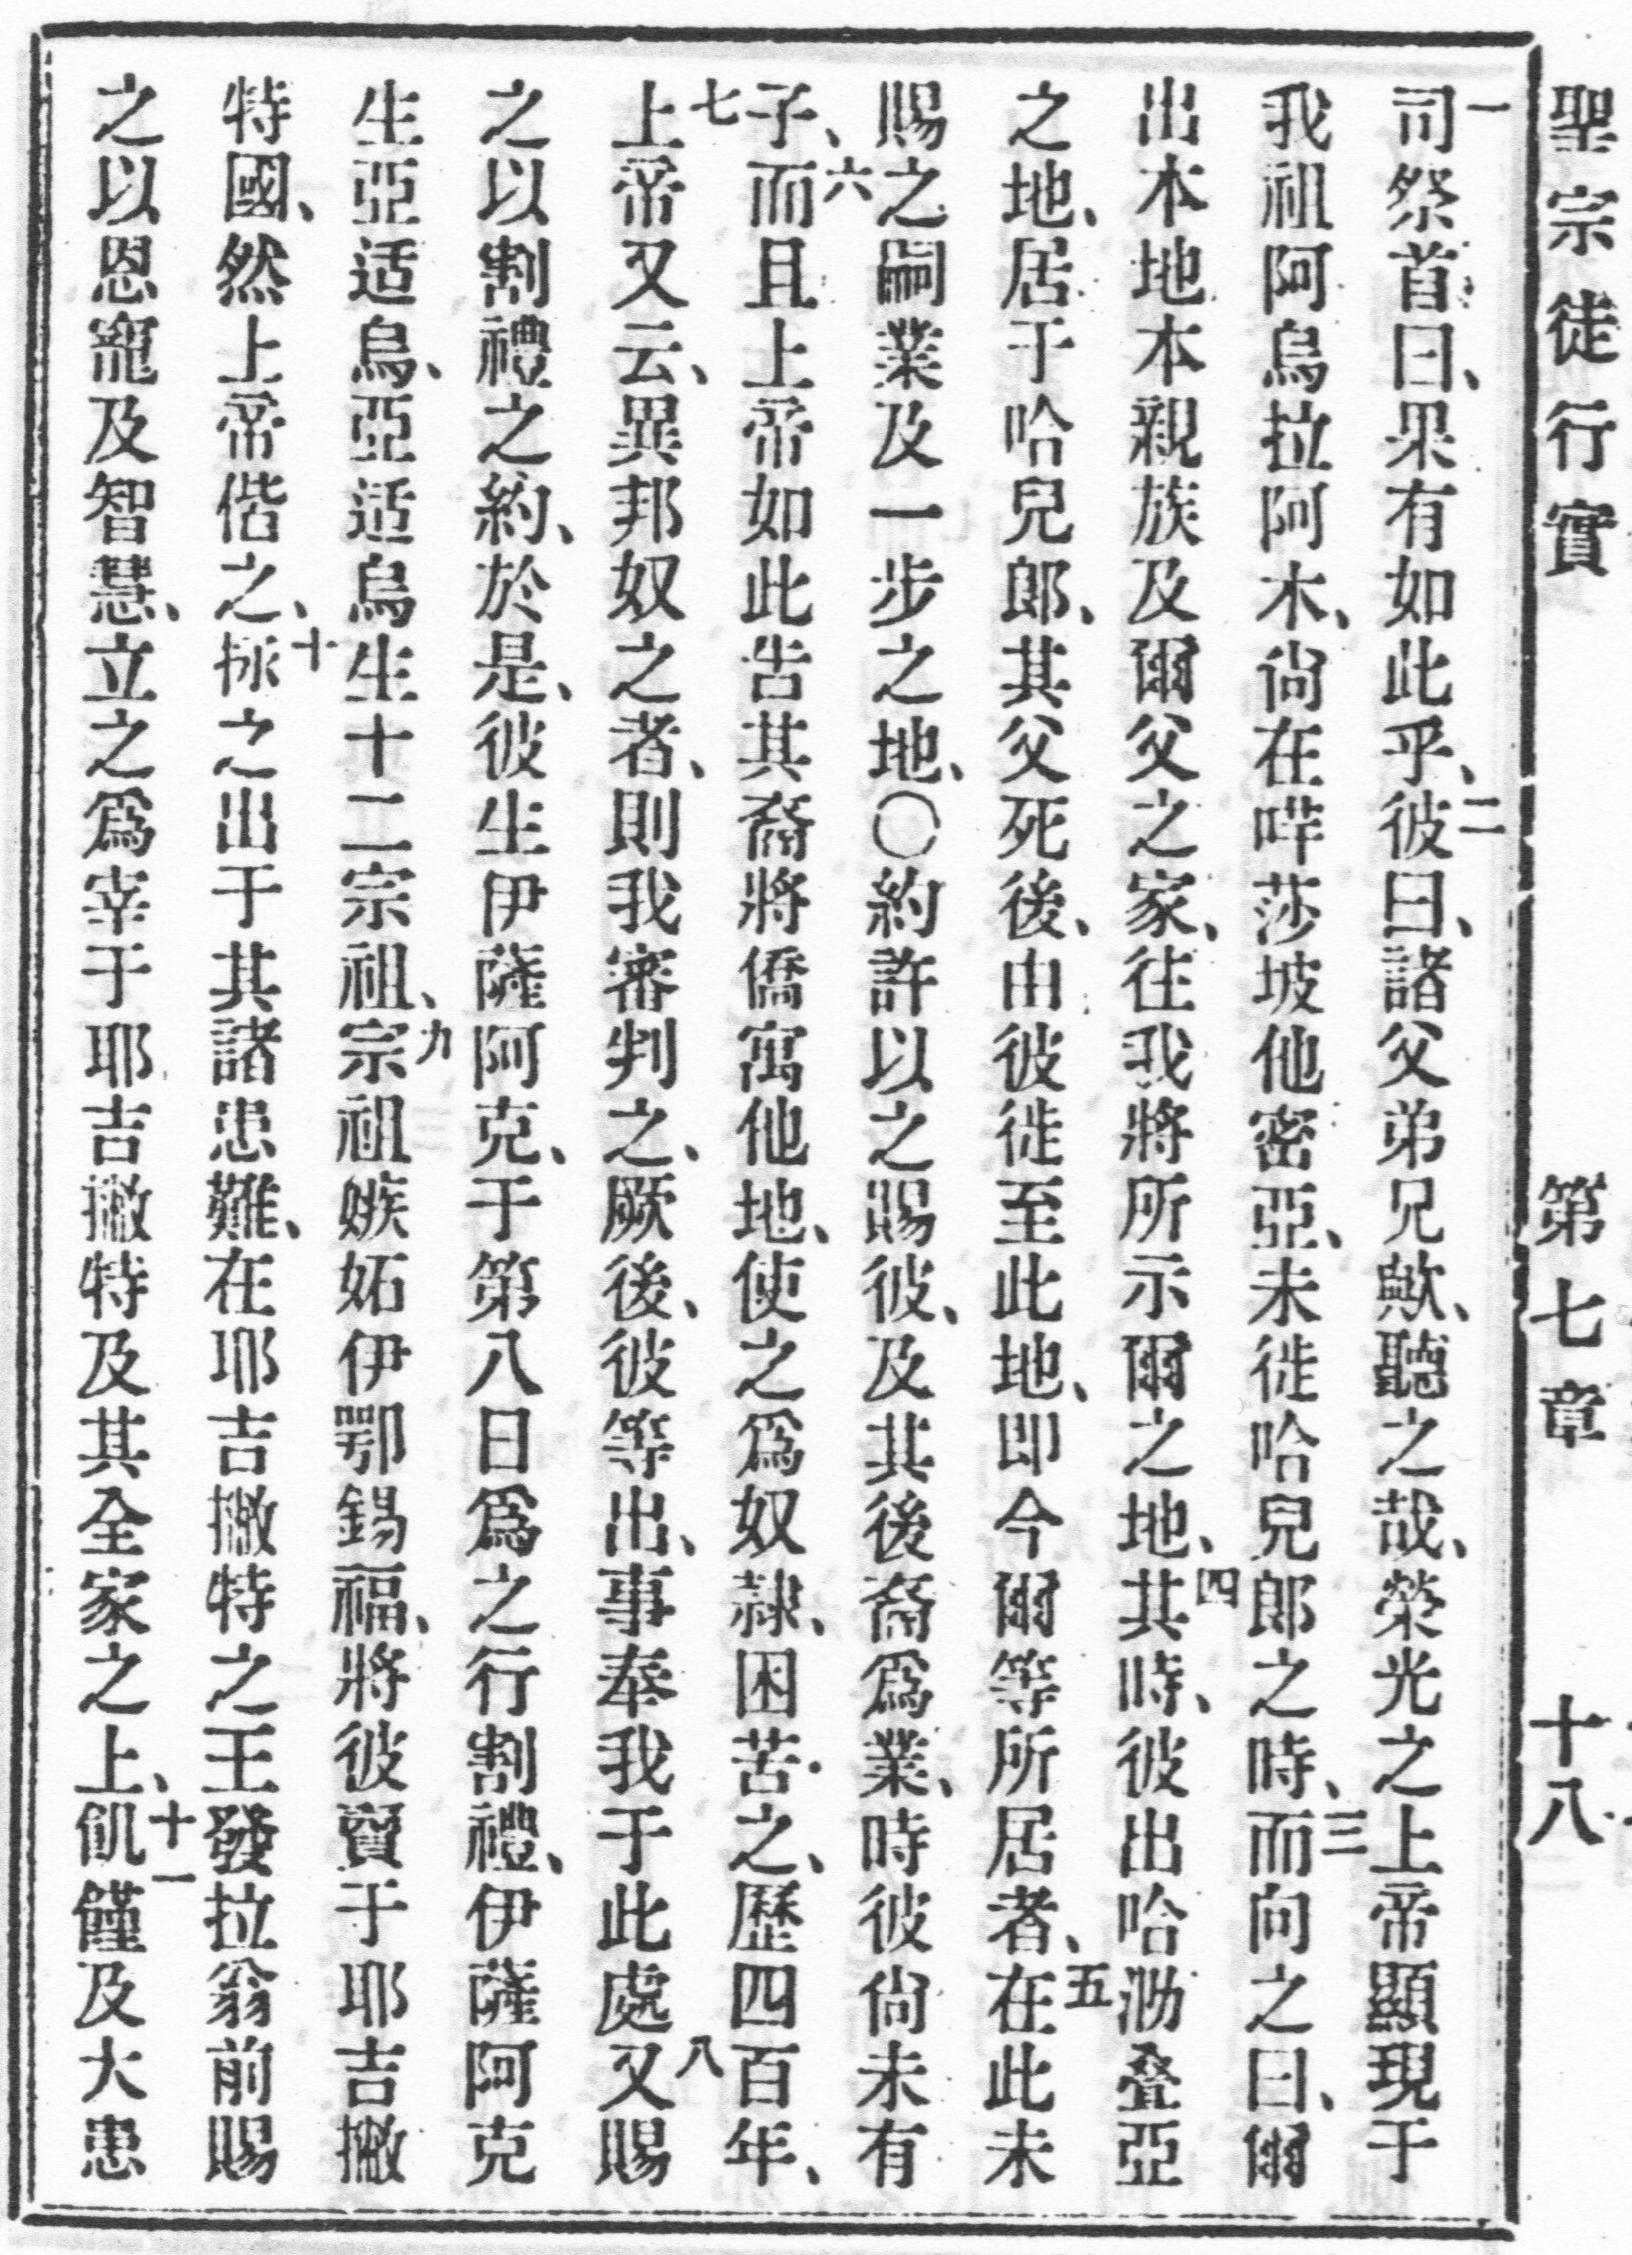 聖宗徒行實 第七章 十八
一司祭首曰、果有如此乎、二彼曰、諸父弟兄歟、聽之哉、榮光之上帝顯現于
我祖阿烏拉阿木、尙在咩莎坡他密亞、未徙哈兒郎之時、三而向之曰、爾
出本地本親族及爾父之家、往我將所示爾之地、四其時、彼出哈泐叠亞
之地、居于哈兒郎、其父死後、由彼徙至此地、即今爾等所居者、五在此未
賜之嗣業及一步之地、〇約許以之賜彼、及其後裔爲業、時彼尙未有
子、六而且上帝如此告其裔將僑寓他地、使之爲奴隸、困苦之、歷四百年、
七上帝又云、異邦奴之者、則我審判之、厥後、彼等出、事奉我于此處八又賜
之以割禮之約、於是、彼生伊薩阿克、于第八日爲之行割禮、伊薩阿克
生亞适烏、亞适烏生十二宗祖、九宗祖嫉妬伊鄂錫福、將彼賣于耶吉撇
特國、然上帝偕之、十拯之出于其諸患難、在耶吉撇特之王發拉翁前賜
之以恩寵及智慧、立之爲宰于耶吉撇特及其全家之上、十一飢饉及大患